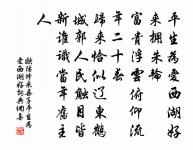 平生為愛西湖好
來拥朱輪
富貴浮雲俯仰流
年二十春
歸來恰似遼東鶴
城郭人民觸目皆
新誰識當年舊主
人
歐陽修采桑子平生為
愛西湖好詞